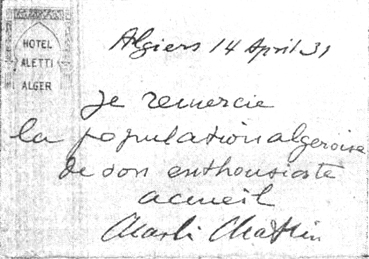 HOTEL
ALETTI
ALGER
Algiers 14 April 31
Je remercie
la population algeroise
de son enthousiaste
acceuil
Charli Chaplin